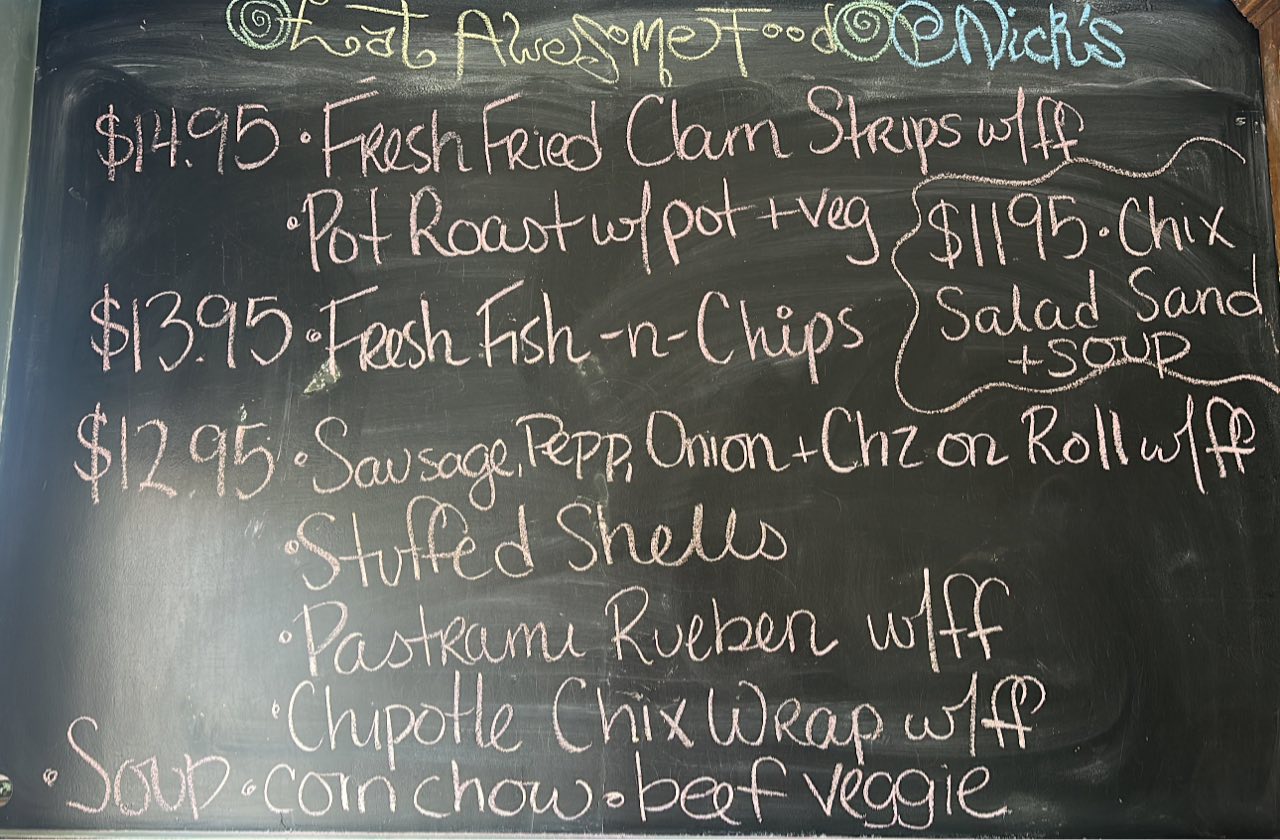 Eat Awesome Food @ Nick's
$14.95 • Fresh Fried Clam Strips w/ff
• Pot Roast w/ pot + veg
$11.95 • Chix
Salad Sand
+ soup
$13.95 • Fresh Fish -n- Chips
$12.95 • Sausage, Pepp, Onion + Chz on Roll w/ff
• Stuffed Shells
• Pastrami Rueben w/ff
• Chipotle Chix Wrap w/ff
• Soup • corn chow • beef veggie